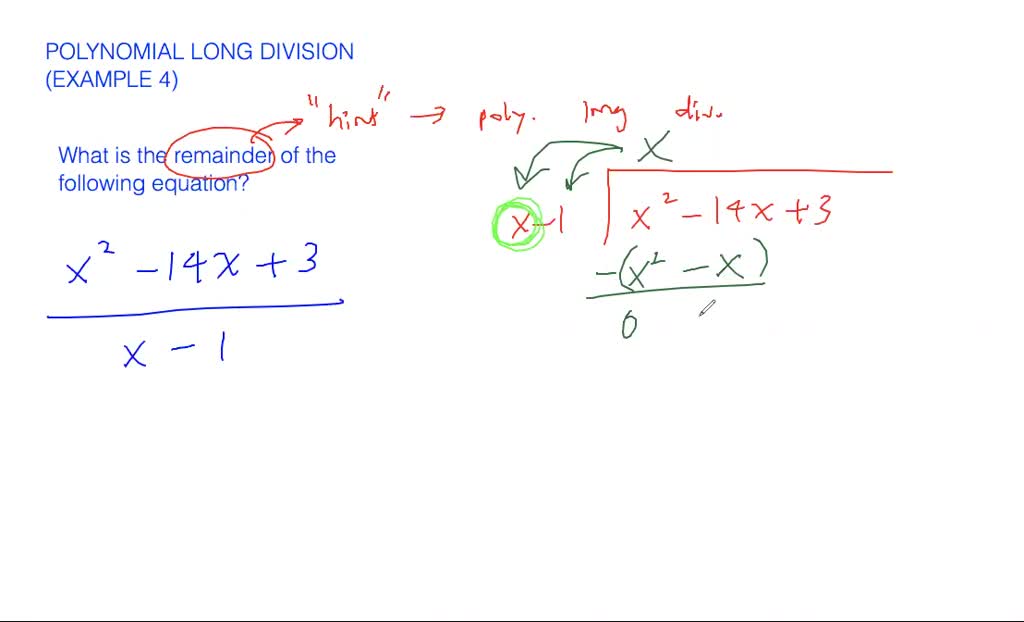 POLYNOMIAL LONG DIVISION
(EXAMPLE 4)
"hint" → poly. long div.
What is the remainder of the
following equation?
x
x - 1 x² - 14x + 3
-(x² - x)
0
x² - 14x + 3
x - 1